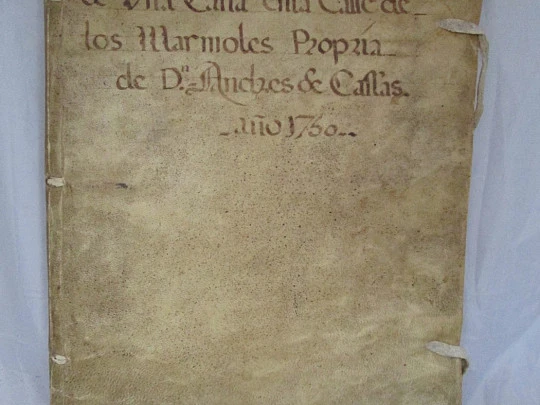 de Vna Casa en la Calle de
los Marmoles Propria
de Dn. Andres de Cassas.
año 1760